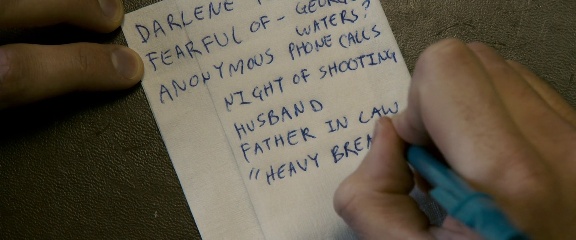 DARLENE
FEARFUL OF - GEORGE
WATERS?
ANONYMOUS PHONE CALLS
NIGHT OF SHOOTING
HUSBAND
FATHER IN LAW
"HEAVY BREA